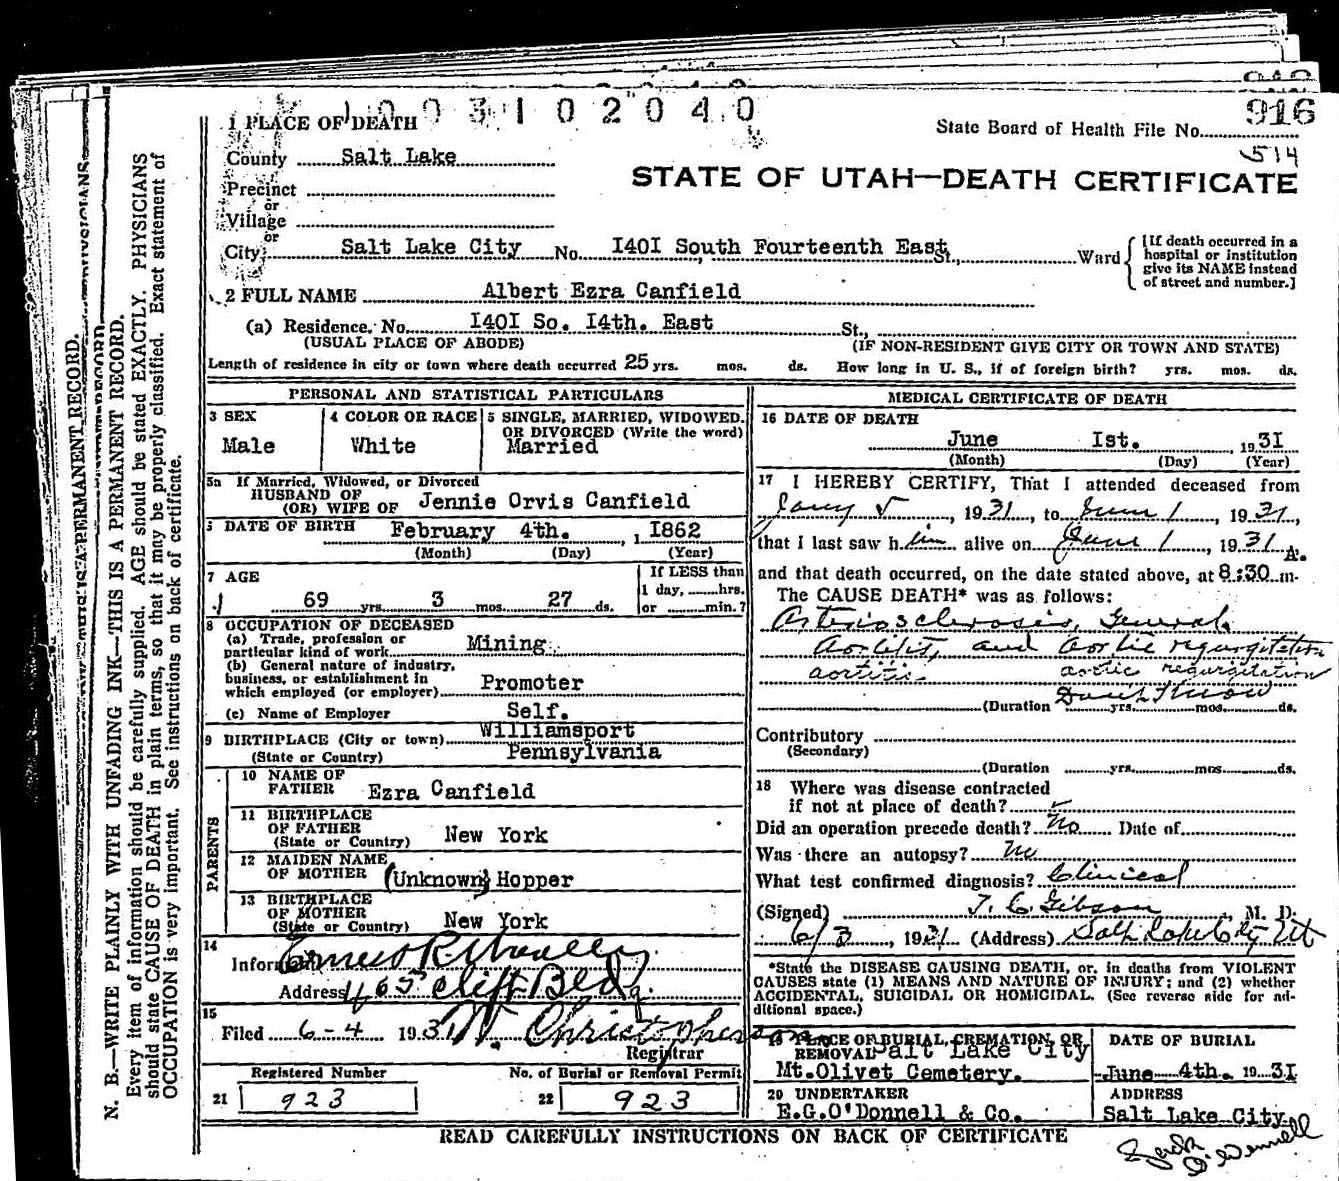 1003102040
916
1 PLACE OF DEATH
State Board of Health File No.
514
County Salt Lake
STATE OF UTAH—DEATH CERTIFICATE
Precinct
or
Village
or
City Salt Lake City No. I40I South Fourteenth East St., Ward {[If death occurred in a hospital or institution give its NAME instead of street and number.]
2 FULL NAME Albert Ezra Canfield
(a) Residence. No. I40I So. I4th. East St.,
(USUAL PLACE OF ABODE) (IF NON-RESIDENT GIVE CITY OR TOWN AND STATE)
Length of residence in city or town where death occurred 25 yrs. mos. ds. How long in U. S., if of foreign birth? yrs. mos. ds.
PERSONAL AND STATISTICAL PARTICULARS
3 SEX
Male
4 COLOR OR RACE
White
5 SINGLE, MARRIED, WIDOWED,
OR DIVORCED (Write the word)
Married
5a If Married, Widowed, or Divorced
HUSBAND OF
(OR) WIFE OF Jennie Orvis Canfield
DATE OF BIRTH February 4th. , 1 I862
(Month) (Day) (Year)
7 AGE
69 yrs. 3 mos. 27 ds.
If LESS than
1 day, hrs.
or min.?
8 OCCUPATION OF DECEASED
(a) Trade, profession or
particular kind of work Mining
(b) General nature of industry,
business, or establishment in
which employed (or employer) Promoter
(c) Name of Employer Self.
9 BIRTHPLACE (City or town) Williamsport
(State or Country) Pennsylvania
PARENTS
10 NAME OF
FATHER Ezra Canfield
11 BIRTHPLACE
OF FATHER
(State or Country) New York
12 MAIDEN NAME
OF MOTHER (Unknown) Hopper
13 BIRTHPLACE
OF MOTHER
(State or Country) New York
14
Informant
Address 465 Cliff Bldg.
15
Filed 6-4 1931 Christopherson
Registrar
Registered Number
21 923
No. of Burial or Removal Permit
22 923
MEDICAL CERTIFICATE OF DEATH
16 DATE OF DEATH
June Ist. , 19 3I
(Month) (Day) (Year)
17 I HEREBY CERTIFY, That I attended deceased from
19 31, to June 1, 19 31,
that I last saw h im alive on June 1, 19 31 A.
and that death occurred, on the date stated above, at 8:30 m.
The CAUSE DEATH* was as follows:
Arteriosclerosis, General.
Aortitis, and Aortic regurgitation
aortitis aortic regurgitation
(Duration Don't Know yrs. mos. ds.
Contributory
(Secondary)
(Duration yrs. mos. ds.
18 Where was disease contracted
if not at place of death?
Did an operation precede death? No Date of
Was there an autopsy? no
What test confirmed diagnosis? Clinical
(Signed) T. C. Gibson, M. D.
6/3, 1931 (Address) Salt Lake City Ut
*State the DISEASE CAUSING DEATH, or, in deaths from VIOLENT
CAUSES state (1) MEANS AND NATURE OF INJURY; and (2) whether
ACCIDENTAL, SUICIDAL OR HOMICIDAL. (See reverse side for ad-
ditional space.)
PLACE OF BURIAL, CREMATION, OR
REMOVAL Salt Lake City
Mt.Olivet Cemetery.
DATE OF BURIAL
June 4th. 19 3I
20 UNDERTAKER
E.G.O'Donnell & Co.
ADDRESS
Salt Lake City
READ CAREFULLY INSTRUCTIONS ON BACK OF CERTIFICATE
O'Donnell
N. B.—WRITE PLAINLY WITH UNFADING INK—THIS IS A PERMANENT RECORD.
Every item of information should be carefully supplied. AGE should be stated EXACTLY. PHYSICIANS
should state CAUSE OF DEATH in plain terms, so that it may be properly classified. Exact statement of
OCCUPATION is very important. See instructions on back of certificate.